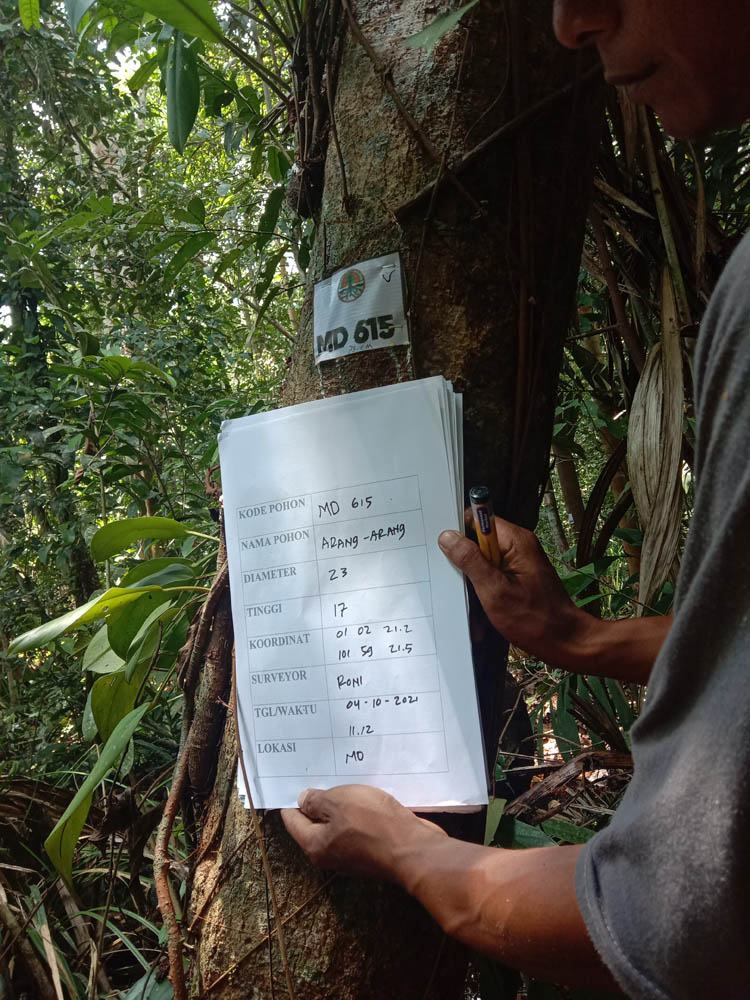 MD 615
KODE POHON MD 615
NAMA POHON ARANG-ARANG
DIAMETER 23
TINGGI 17
KOORDINAT 01 02 21.2
101 59 21.5
SURVEYOR RONI
TGL/WAKTU 04-10-2021
11.12
LOKASI MD